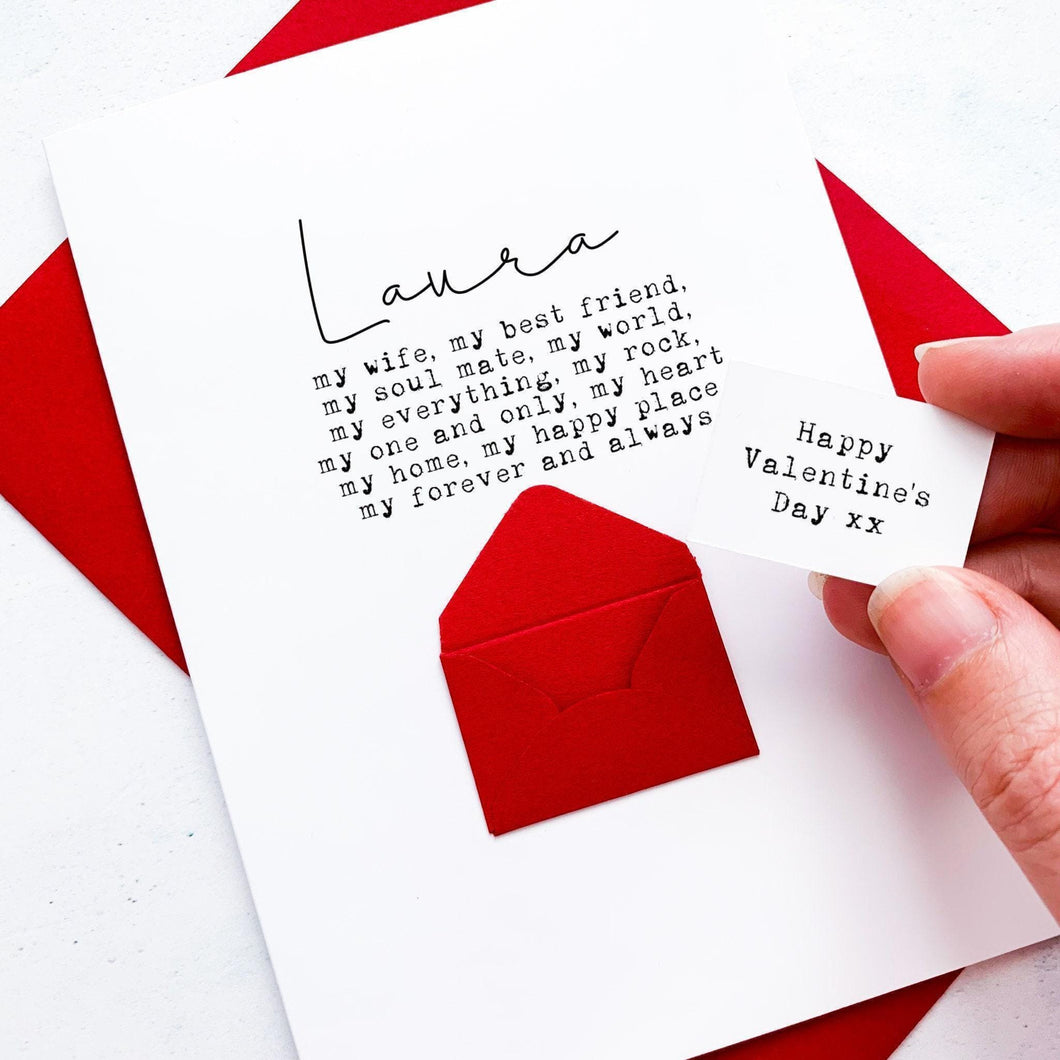 Laura
my wife, my best friend,
my soul mate, my world,
my everything, my rock,
my one and only, my heart
my home, my happy place
my forever and always
Happy
Valentine's
Day xx